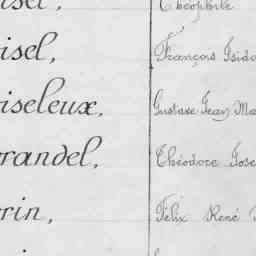 isel, Théophile
isel, François Isido
iseleux, Gustave Jean Ma
randel, Théodore Jose
rin, Félix René